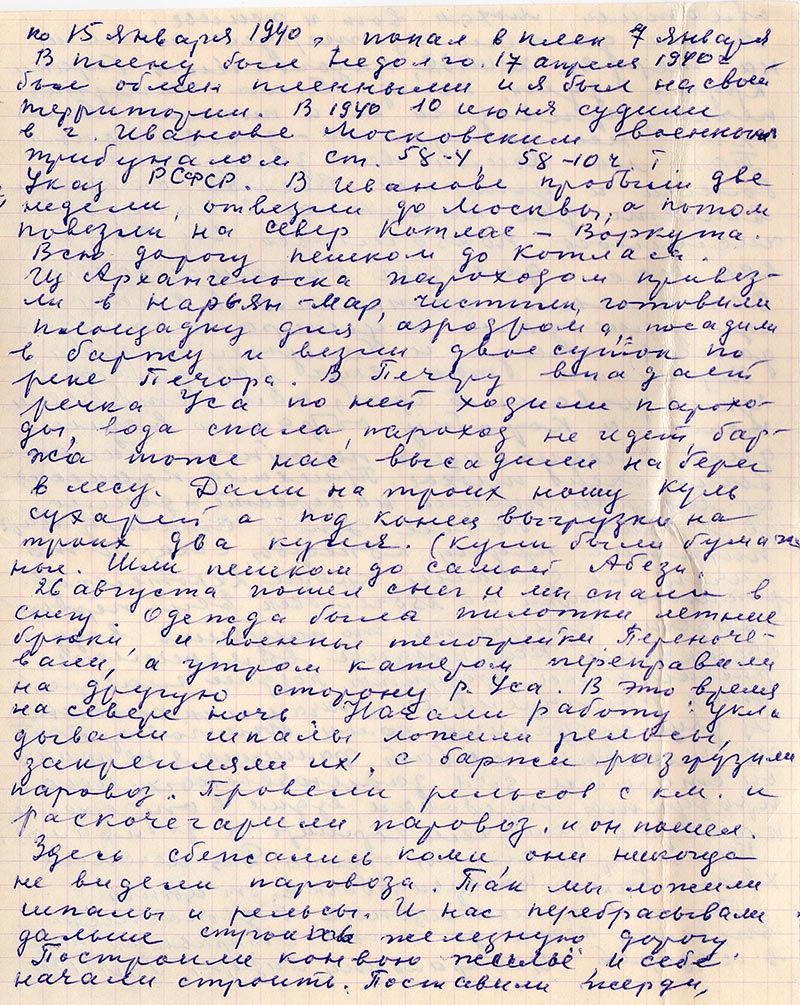 по 15 января 1940, попал в плен 7 января
В плену был недолго. 17 апреля 1940 г
был обмен пленными и я был на своей
территории. В 1940 10 июня судили
в г. Иванове Московским военным
трибуналом ст. 58-4, 58-10 ч I
Указ РСФСР. В Иванове пробыли две
недели, отвезли до Москвы, а потом
повезли на север Котлас - Воркута.
Всю дорогу пешком до Котласа.
Из Архангельска пароходом привез-
ли в Нарьян-Мар, чистили, готовили
площадку для аэродрома, посадили
в баржу и везли двое суток по
реке Печора. В Печору впадает
речка Уса по ней ходили парохо-
ды, вода спала, пароход не идет, бар-
жа тоже нас высадили на берег
в лесу. Дали на троих ношу куль
сухарей а под конец выгрузки на
троих два куля. (Кули были бумаж
ные. Шли пешком до самой Абези.
26 августа пошел снег и мы спали в
снегу. Одежда была пилотки летние
брюки и военные телогрейки. Переноче-
вали, а утром катером переправили
на другую сторону р. Уса. В это время
на севере ночь. Начали работу: укла
дывали шпалы ложили рельсы,
закрепляли их, с баржи разгрузили
паровоз. Провели рельсов с км. и
раскочегарили паровоз. и он пошел.
Здесь сбежались коми, они никогда
не видели паровоза. Так мы ложили
шпалы и рельсы. И нас перебрасывали
дальше строить железную дорогу
Построили конвою жильё и себе
начали строить. Поставили жерди,